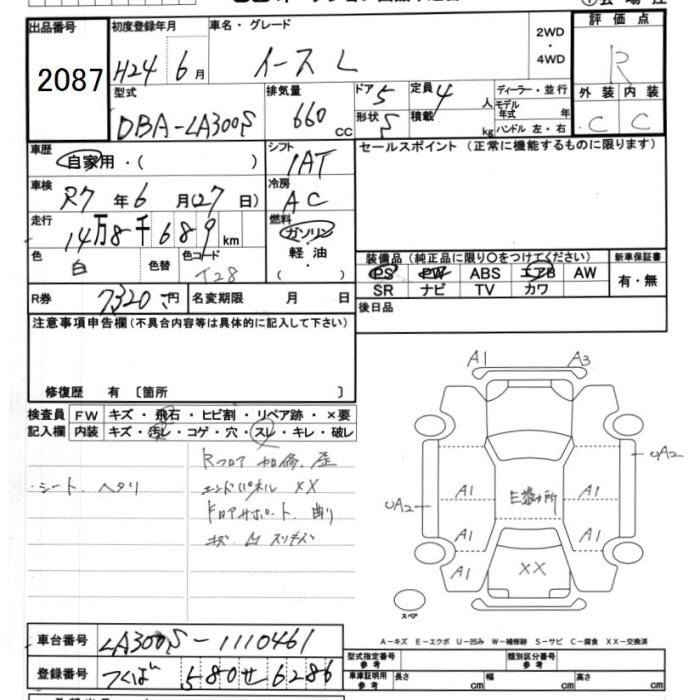 出品番号 2087
初度登録年月 H24 6月
車名・グレード イース L
2WD・4WD
評価点 R
外装 C 内装 C
型式 DBA-LA300S
排気量 660 CC
ドア 5 定員 4人
形状 5 積載 kg
ディーラー・並行
モデル年式 年
ハンドル 左・右
車歴 自家用・( )
シフト IAT
セールスポイント (正常に機能するものに限ります)
車検 R7年6月(27日)
冷房 AC
走行 14万8千689km
燃料 ガソリン・軽油・( )
色 白 色替 色コード T28
装備品 (純正品に限り○をつけてください)
PS PW ABS エアB AW
SR ナビ TV カワ
新車保証書 有・無
R券 7320円 名変期限 月 日
後日品
注意事項申告欄 (不具合内容等は具体的に記入して下さい)
修復歴 有 〔箇所 〕
検査員記入欄
FW キズ・飛石・ヒビ割・リペア跡・×要
内装 キズ・汚レ・コゲ・穴・スレ・キレ・破レ
・シート ヘタリ
Rフロア 加修、歪
エンドパネル XX
キズ
A1 A3
UA2
UA2
A1 A1
A1 A1
A1 XX
スペア
A-キズ E-エクボ U-凹み W-補修跡 S-サビ C-腐食 XX-交換済
車台番号 LA300S-1110461
登録番号 つくば 580せ6286
型式指定番号 参考
類別区分番号 参考
車庫証明用 参考 長さ cm 幅 cm 高さ cm